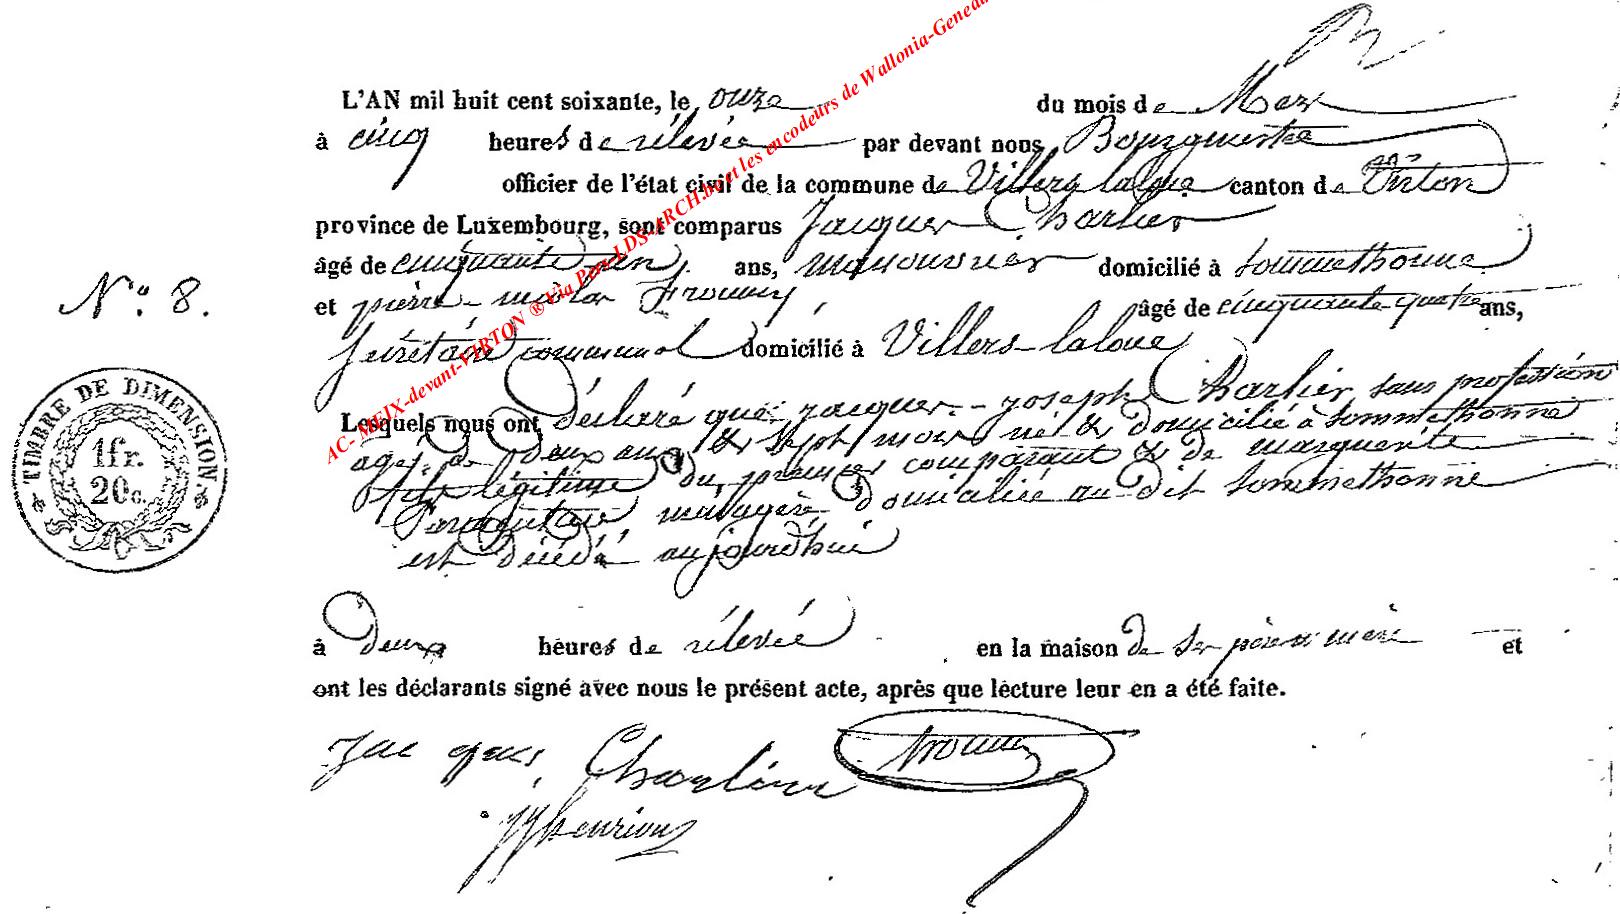 L'AN mil huit cent soixante, le onze du mois de Mars
à cinq heures de rélevée par devant nous Bourguestre
officier de l'état civil de la commune de Villers laloue canton de Virton
province de Luxembourg, sont comparus Jacques Charlier
âgé de cinquante un ans, manouvrier domicilié à Sommethonne
N° 8.
et pierre âgé de cinquante quatre ans,
secrétaire communal domicilié à Villers-laloue
Lesquels nous ont déclaré que jacques-joseph Charlier sans profession
agé de deux ans & sept mois né & domicilié à Sommethonne
fils légitime du premier comparant & de marguerite
ménagère domiciliée au dit Sommethonne
est décédé aujourdhui
TIMBRE DE DIMENSION.
1fr.
20c.
à deux heures de rélevée en la maison de ses père & mère et
ont les déclarants signé avec nous le présent acte, après que lecture leur en a été faite.
Jacques Charlier
AC-MEIX-devant-VIRTON ® Via Pex-LDS-ARCH.be et les encodeurs de Wallonia-Geneal